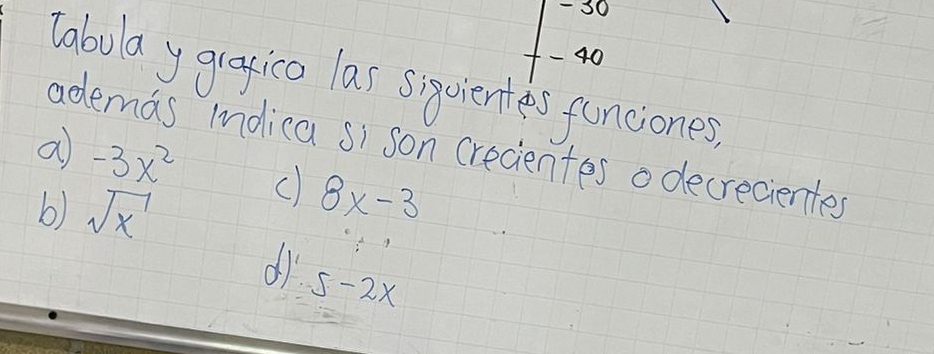 -30
-40
Tabula y grafica las siguientes funciones,
además indica si son crecientes o decrecientes
a) -3x²
b) √x
c) 8x-3
d) 5-2x